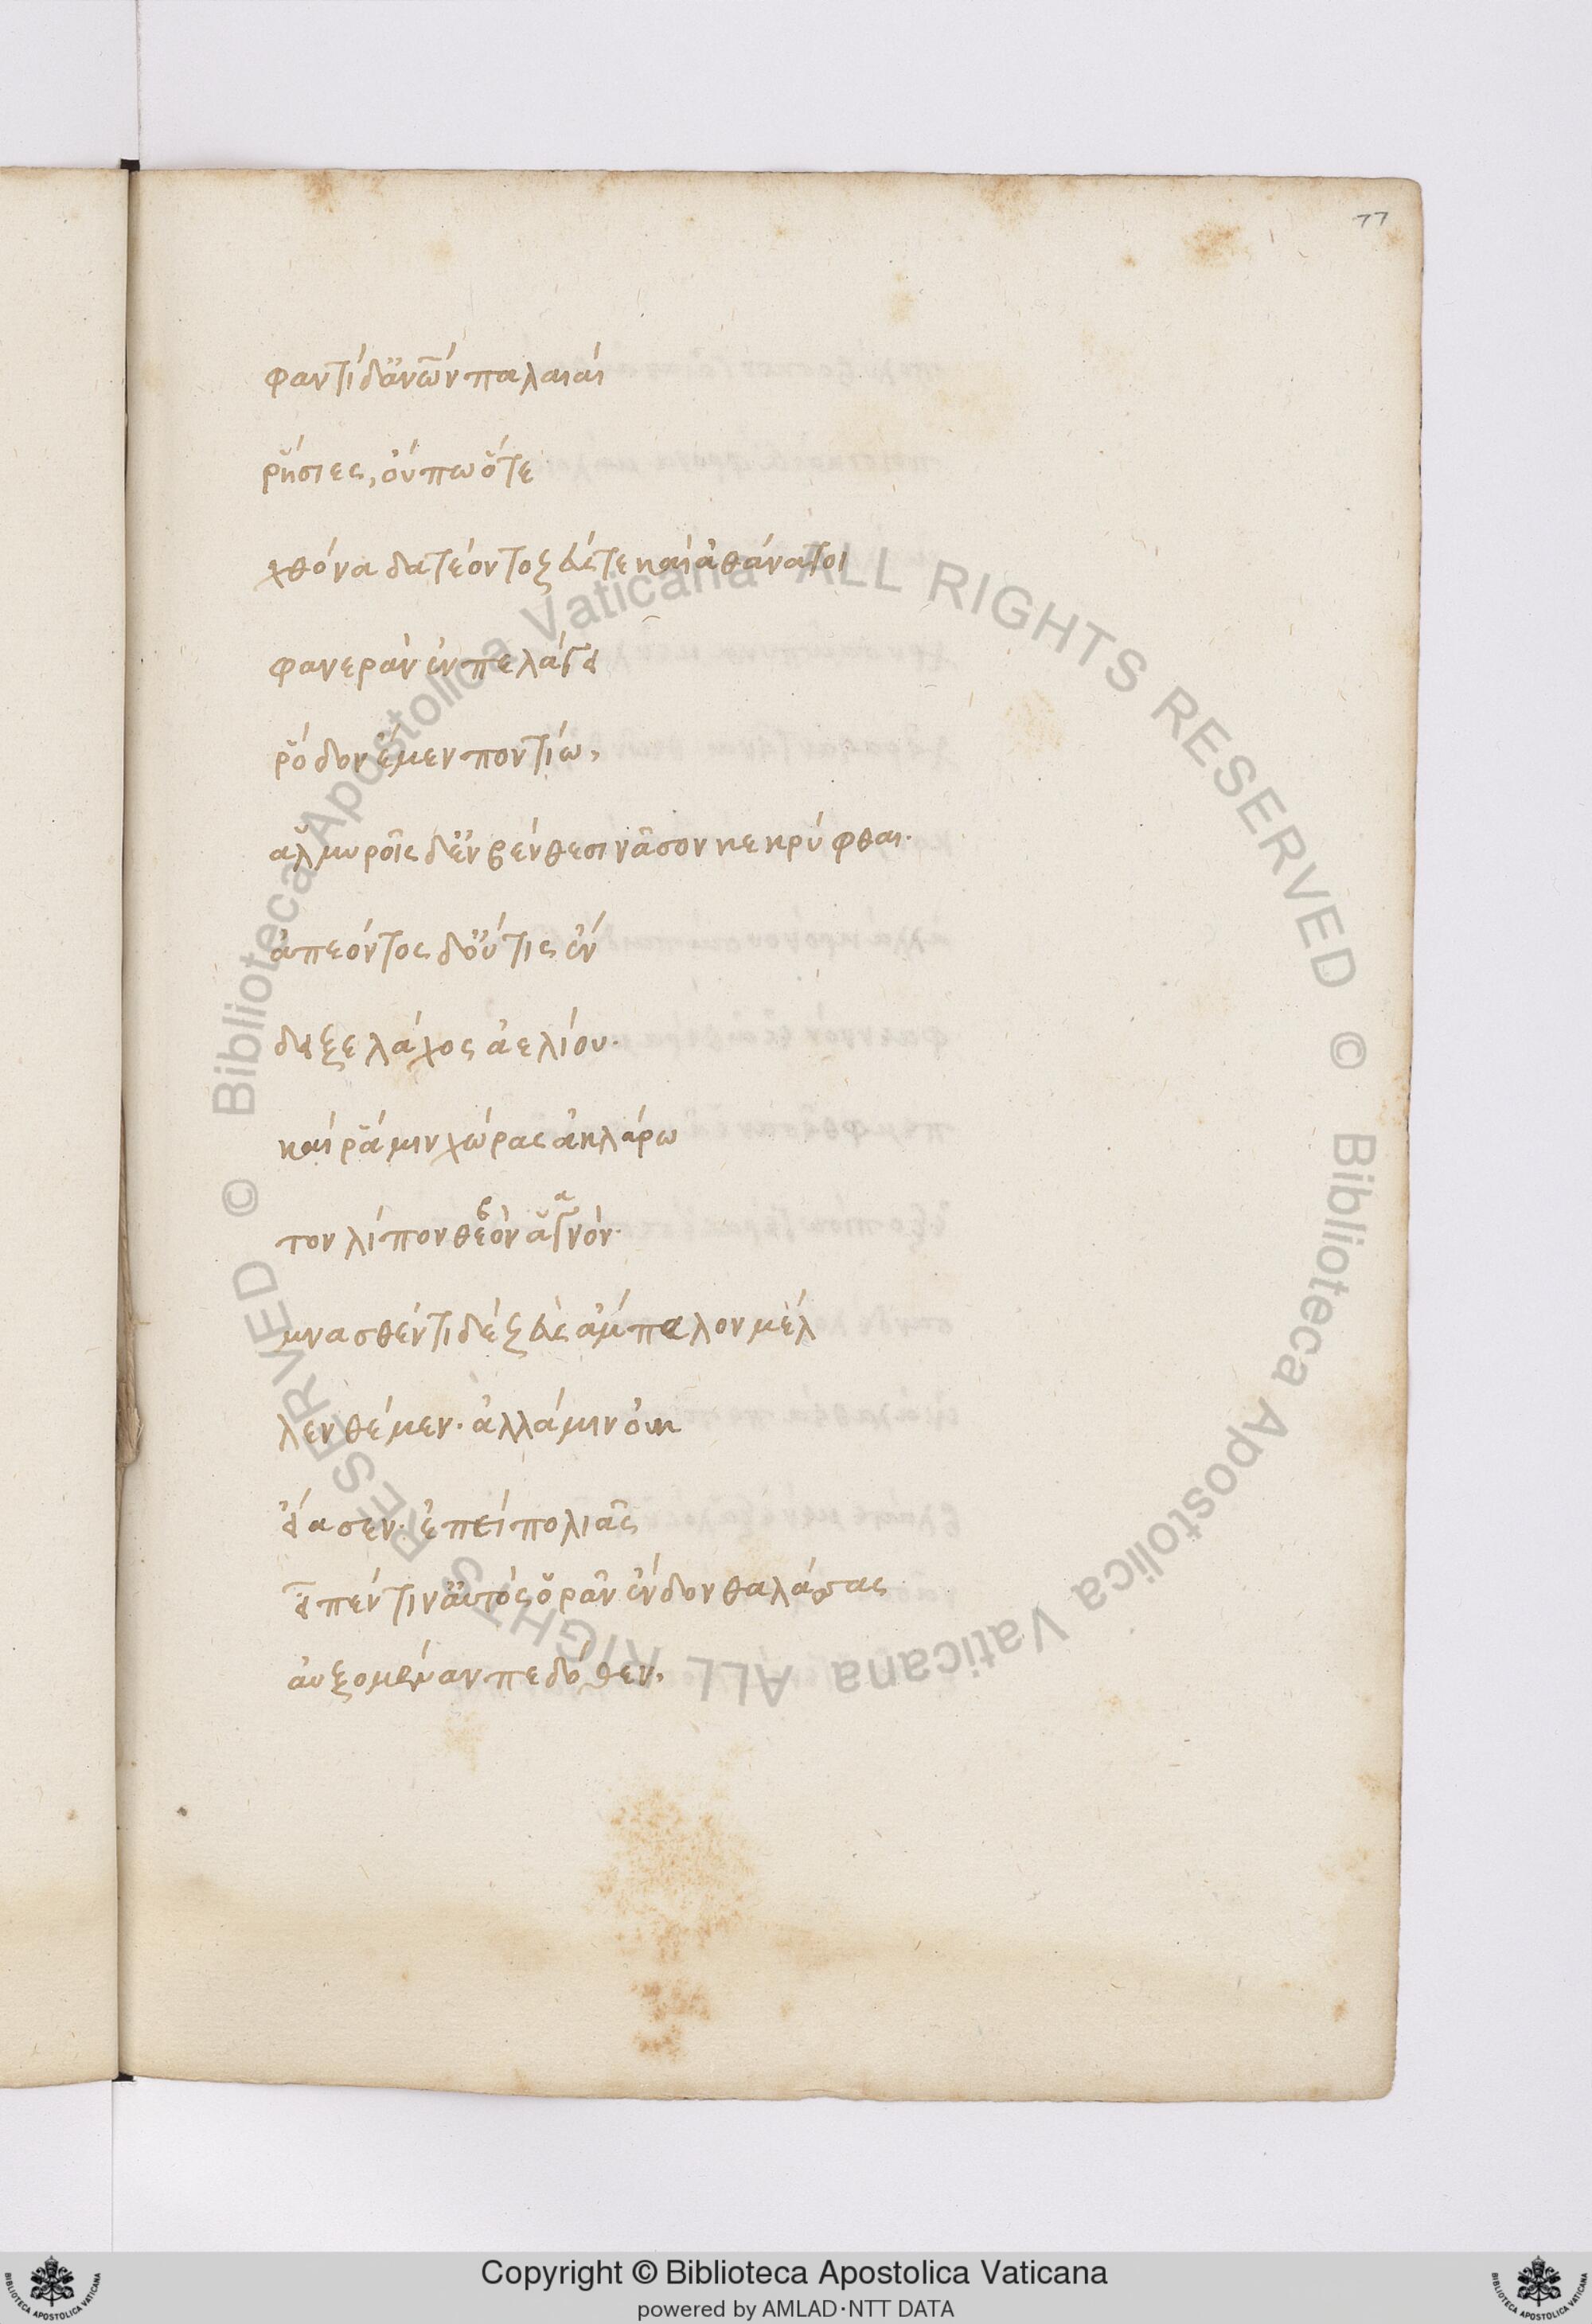 77
φαντὶ δ' ἀν̅ω̅ν παλαιαὶ
ῥήσιες, οὔπω ὅτε
χθόνα δατέοντο ζεύς τε καὶ ἀθάνατοι
φανερὰν ἐν πελάγει
ῥόδον ἔμεν ποντίω,
ἁλμυροῖς δ' ἐν βένθεσι νᾶσον κεκρύφθαι.
ἀπεόντος δ' οὔτις ἐν
δειξε λάχος ἀελίου.
καί ῥά μιν χώρας ἀκλάρω
τον λίπον θεὸν ἁγνόν.
μνασθέντι δὲ ζεὺς ἄμπαλον μέλ
λεν θέμεν. ἀλλά μιν οὐκ
εἴασεν. ἐπεὶ πολιᾶς
εἶπέν τιν' αὐτὸς ὁρᾶν ἔνδον θαλάσσας
αὐξομέναν πεδόθεν,
Biblioteca Apostolica Vaticana ALL RIGHTS RESERVED ©
Biblioteca Apostolica Vaticana ALL RIGHTS RESERVED ©
Copyright © Biblioteca Apostolica Vaticana
powered by AMLAD·NTT DATA